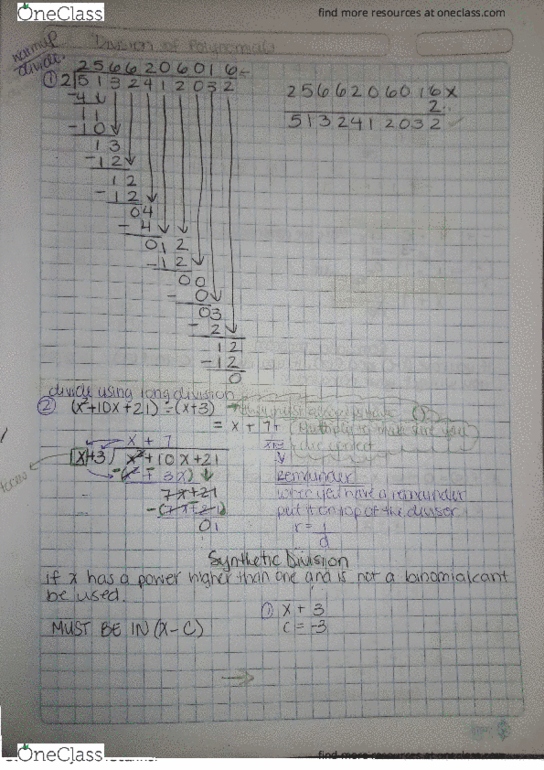 OneClass
find more resources at oneclass.com
Division of Polynomials
warmup
divide:
① 2566206016
2 5132412032
-4
11
-10
13
-12
12
-12
04
-4
012
-12
00
- 0
03
- 2
12
-12
0
2566206016 x
2
5132412032
divide using long division
② (x²+10x+21) ÷ (x+3)
= x + 7 +
Multiply to make sure you
are correct
x + 7
x+3 x²+10x+21
-(x²+ 3x)
7x+21
-(7x+21)
01
Remainder
put it on top of the divisor
r = 1
d
Synthetic Division
if x has a power higher than one and is not a binomial cant
be used.
① x + 3
MUST BE IN (X-C)
c = -3
OneClass
find more resources at oneclass.com